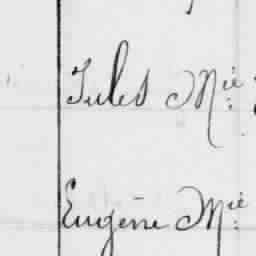 Jules Mie:
Eugène Mie: